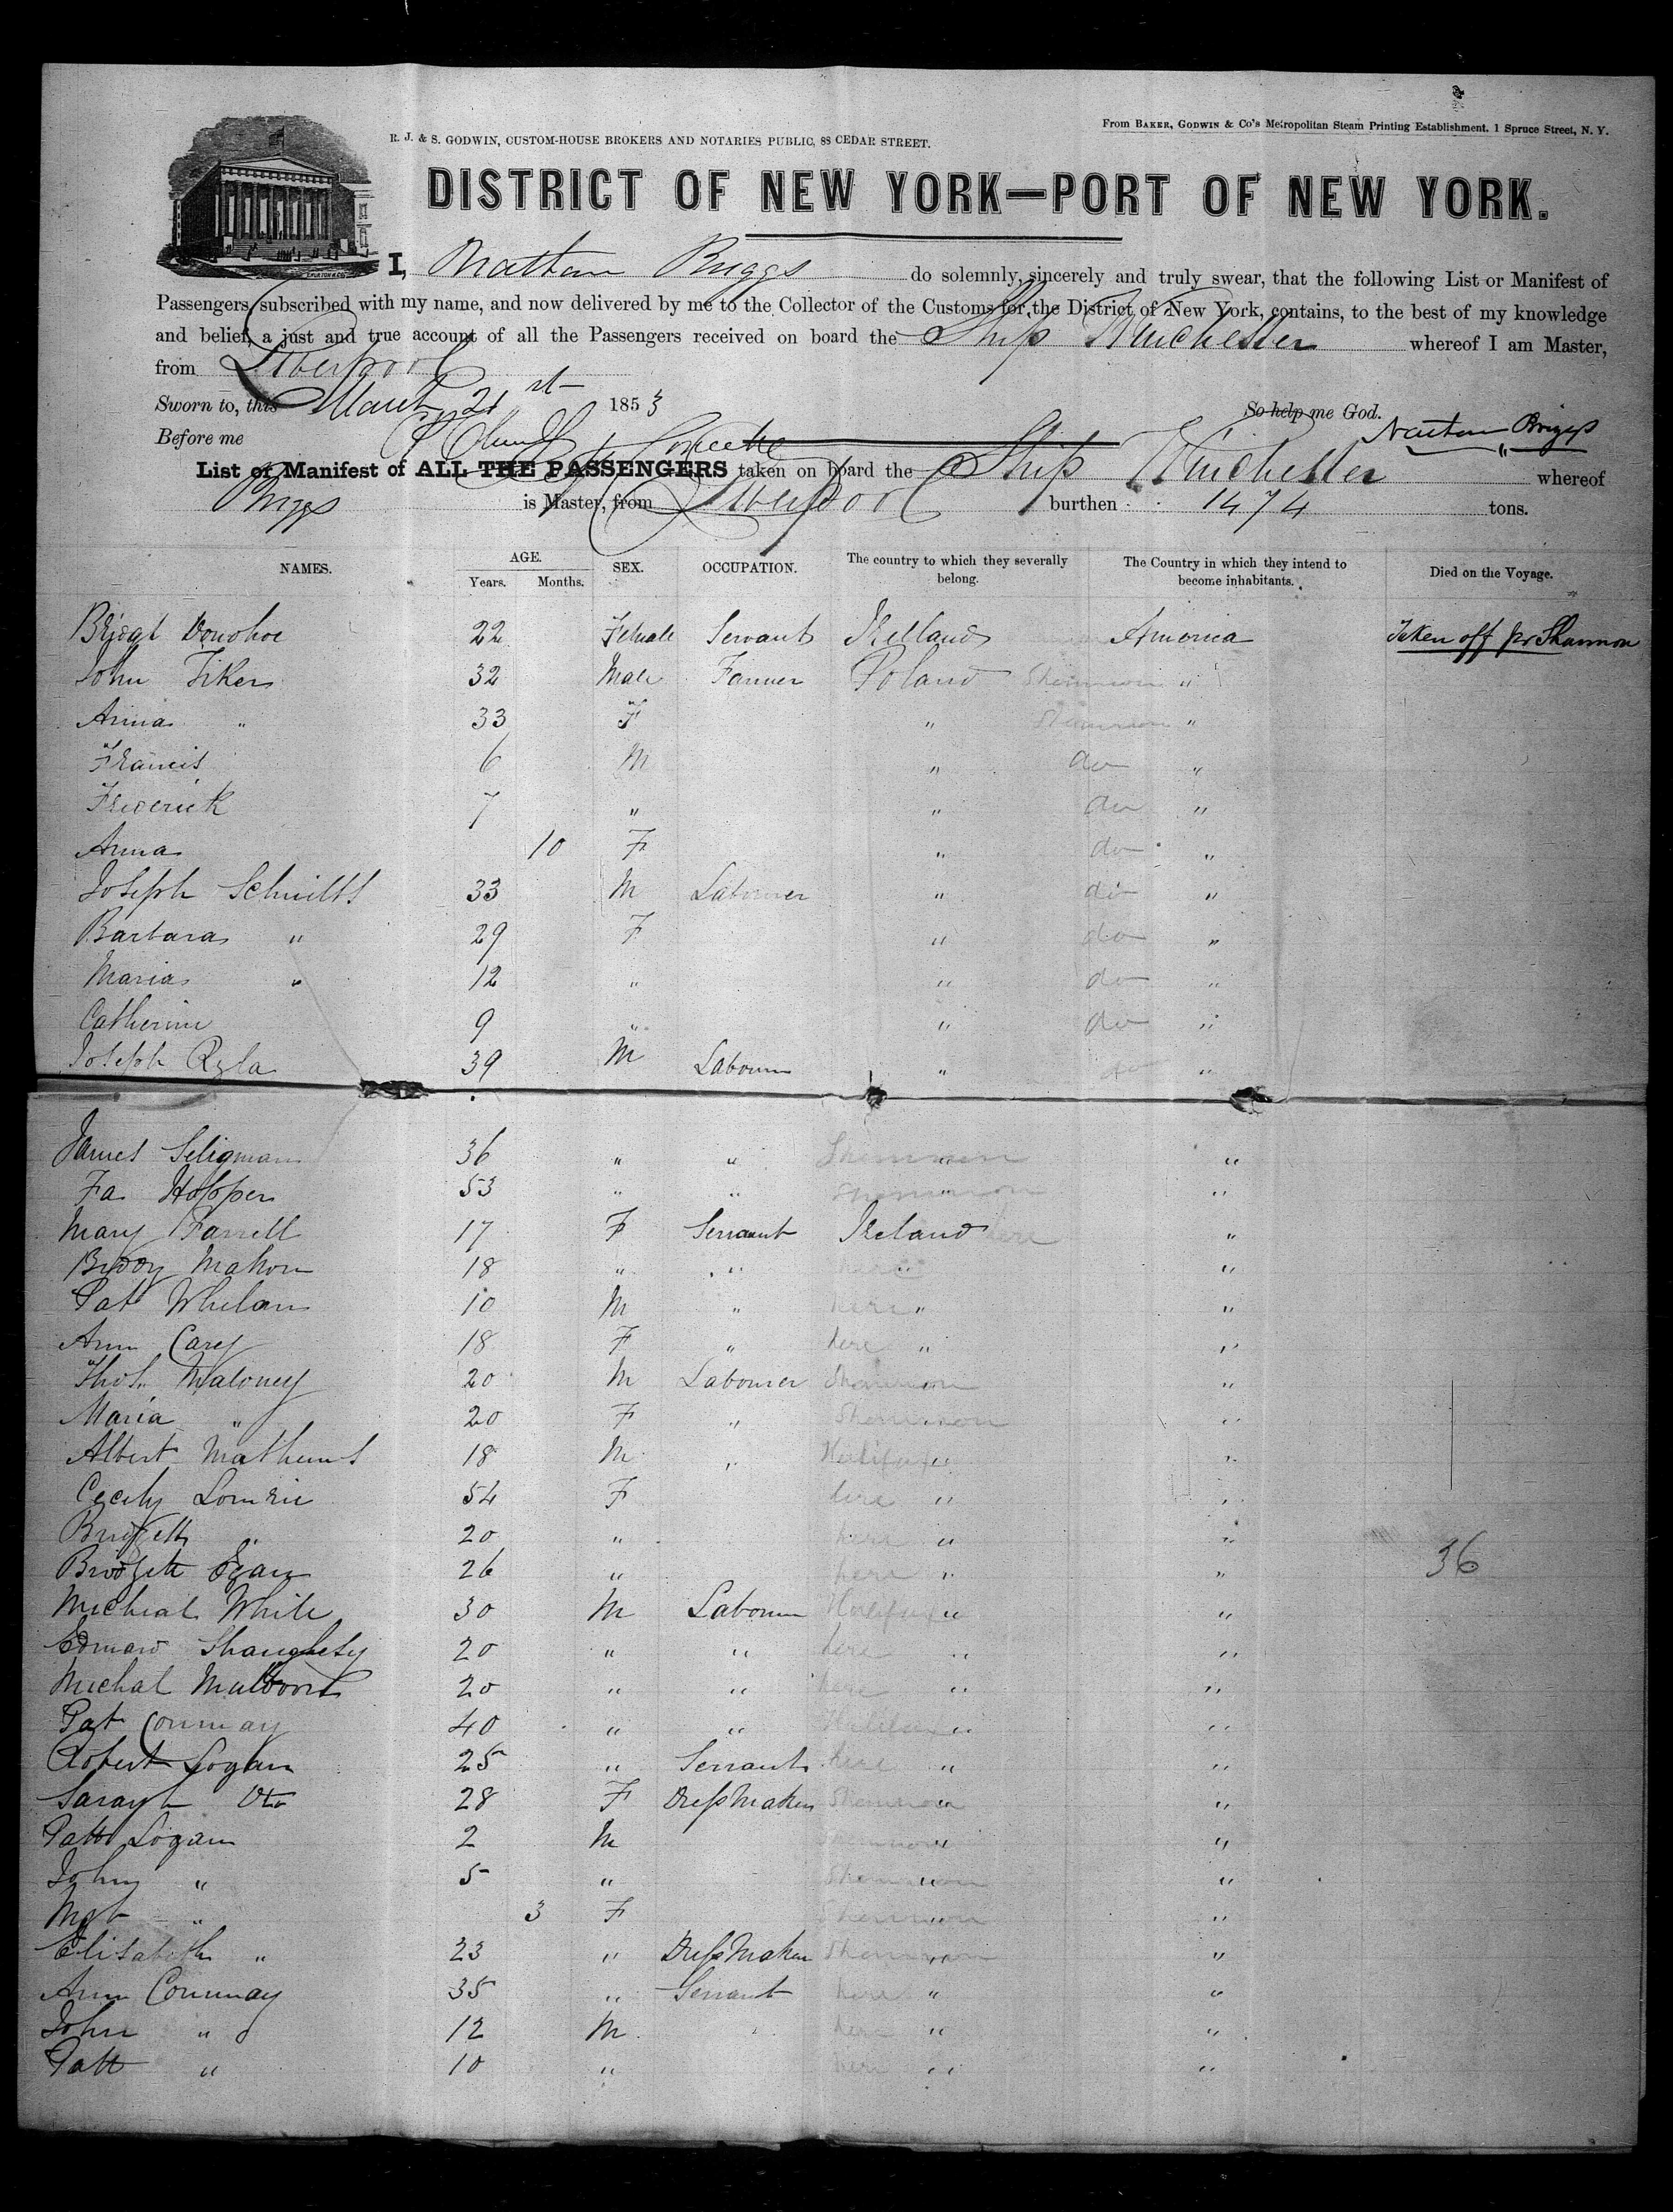 From BAKER, GODWIN & Co's Metropolitan Steam Printing Establishment, 1 Spruce Street, N. Y.
R. J. & S. GODWIN, CUSTOM-HOUSE BROKERS AND NOTARIES PUBLIC, 88 CEDAR STREET.
DISTRICT OF NEW YORK—PORT OF NEW YORK.
I, Nathan Briggs do solemnly, sincerely and truly swear, that the following List or Manifest of
Passengers, subscribed with my name, and now delivered by me to the Collector of the Customs for the District of New York, contains, to the best of my knowledge
and belief, a just and true account of all the Passengers received on board the Ship Winchester whereof I am Master,
from Liverpool
Sworn to, this March 21st 1853 So help me God.
Before me Nathan Briggs
List or Manifest of ALL THE PASSENGERS taken on board the Ship Winchester whereof
Briggs is Master, from Liverpool burthen 1474 tons.
NAMES. AGE. Years. Months. SEX. OCCUPATION. The country to which they severally belong. The Country in which they intend to become inhabitants. Died on the Voyage.
Bridgt Donohoe 22 Female Servant Ireland America Taken off pr Shannon
John Fiker 32 Male Farmer Poland Shannon "
Anna " 33 F " Shannon "
Francis 6 M " do "
Frederick 7 " " do "
Anna 10 F " do "
Joseph Schmitts 33 M Labourer " do "
Barbara " 29 F " do "
Maria " 12 " " do "
Catherine 9 " " do "
Joseph 39 M Labourer " do "
James Seligman 36 " " Shannon " "
Fa Hopper 53 " " Shannon " "
Mary Farrell 17 F Servant Ireland here "
Biddy Mahon 18 " " here " "
Pat Whelan 10 M " here " "
Ann Carey 18 F " here " "
Thos. Maloney 20 M Labourer Shannon " "
Maria " 20 F " Shannon " "
Albert Mathews 18 M " Halifax " "
Cecily 54 F here " "
Bridgett " 20 " here " "
Bridgett Egan 26 " here " " 36
Micheal White 30 M Labourer Halifax " "
Edward Shaughesy 20 " " here " "
Michal 20 " " here " "
Pat Conway 40 " " Halifax " "
Robert Logan 25 " Servant here " "
Sarayh Do 28 F Dressmaker Shannon " "
Patt Logan 2 M Shannon " "
John " 5 " Shannon " "
Mgt " 3 F Shannon " "
Elisabeth " 23 " Dressmaker Shannon " "
Ann Connway 35 " Servant here " "
John " 12 M here " "
Patt " 10 " here " "